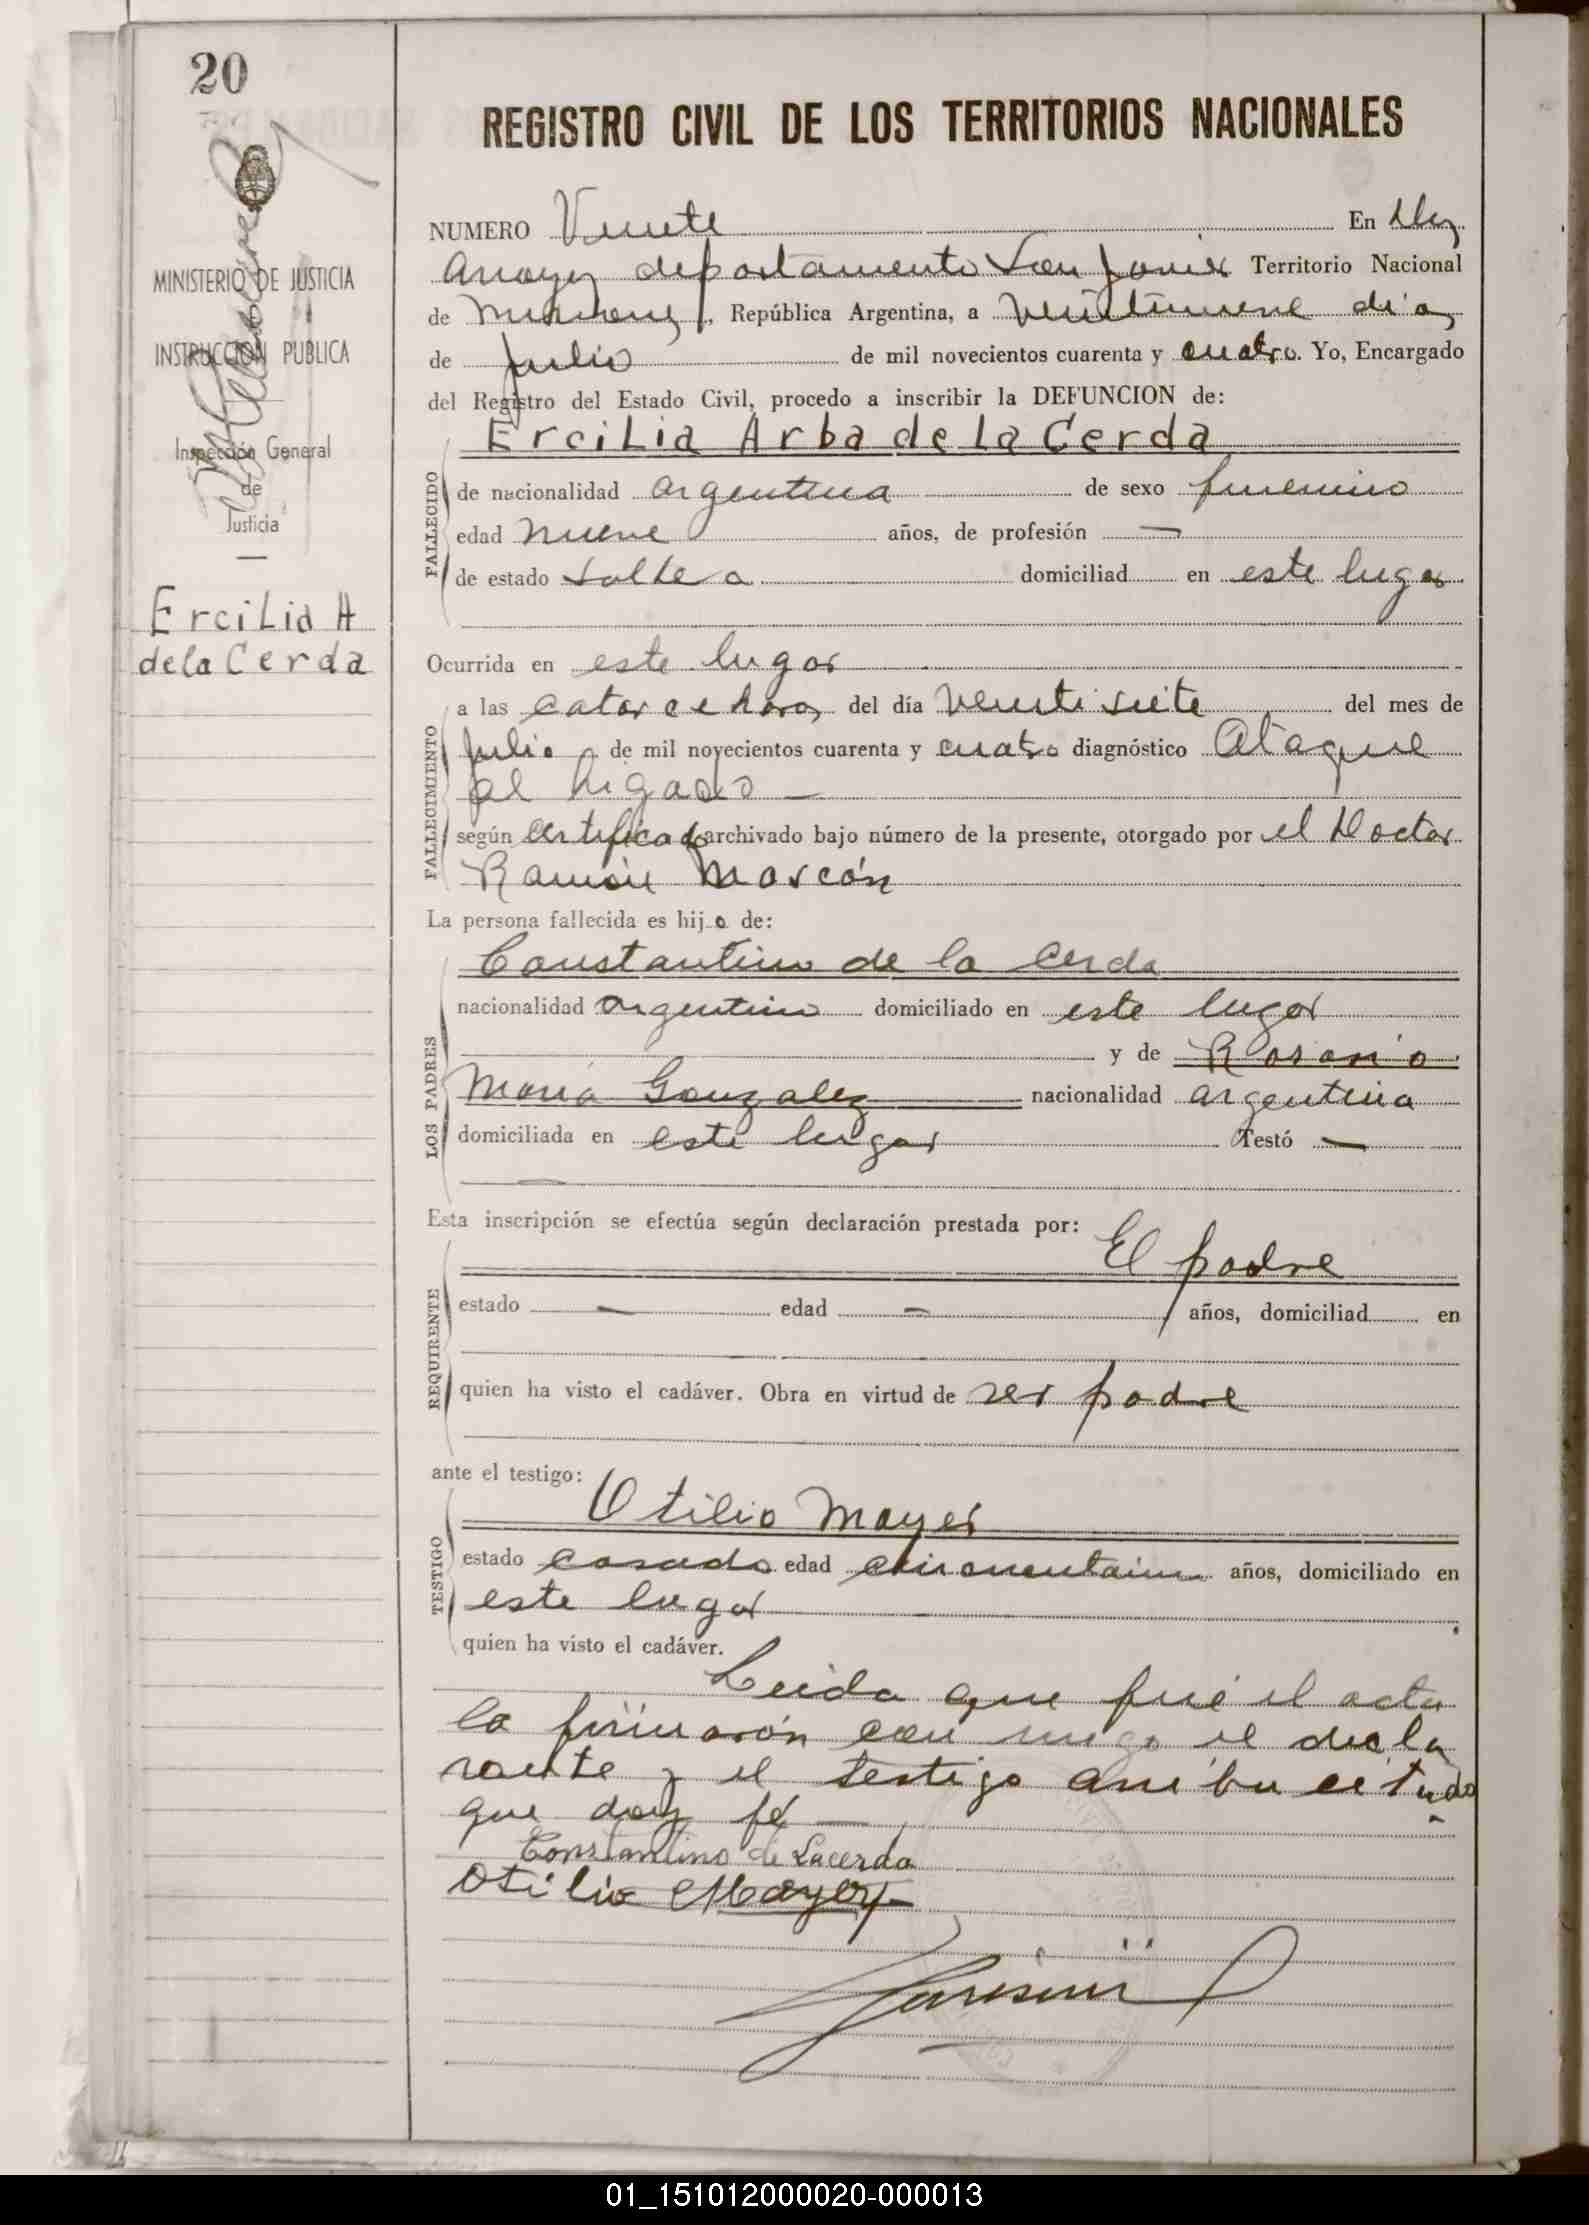 20
REGISTRO CIVIL DE LOS TERRITORIOS NACIONALES
MINISTERIO DE JUSTICIA
INSTRUCCIÓN PUBLICA
Inspección General
de
Justicia
Ercilia A
de la Cerda
NUMERO Veinte En
Arroyos departamento San Javier Territorio Nacional
de Misiones, República Argentina, a veintinueve dias
de Julio de mil novecientos cuarenta y cuatro. Yo, Encargado
del Registro del Estado Civil, procedo a inscribir la DEFUNCION de:
Ercilia Arba de la Cerda
FALLECIDO
de nacionalidad argentina de sexo femenino
edad nueve años, de profesión —
de estado soltera domiciliad en este lugar
Ocurrida en este lugar
FALLECIMIENTO
a las catorce horas del día veinti siete del mes de
Julio de mil novecientos cuarenta y cuatro diagnóstico Ataque
al higado —
según certificado archivado bajo número de la presente, otorgado por el Doctor
Ramón
La persona fallecida es hija de:
LOS PADRES
Constantino de la Cerda
nacionalidad argentino domiciliado en este lugar
y de Rosario
Maria Gonzalez nacionalidad argentina
domiciliada en este lugar Testó —
Esta inscripción se efectúa según declaración prestada por:
REQUIRENTE
El padre
estado — edad — años, domiciliad en
quien ha visto el cadáver. Obra en virtud de ser padre
ante el testigo:
TESTIGO
Otilio Mayer
estado casado edad años, domiciliado en
este lugar
quien ha visto el cadáver.
Leida que fué el acta
la firmarón con migo el decla
rante y el testigo arriba citado
que doy fé —
Constantino de Lacerda
Otilio Mayer
01_151012000020-000013